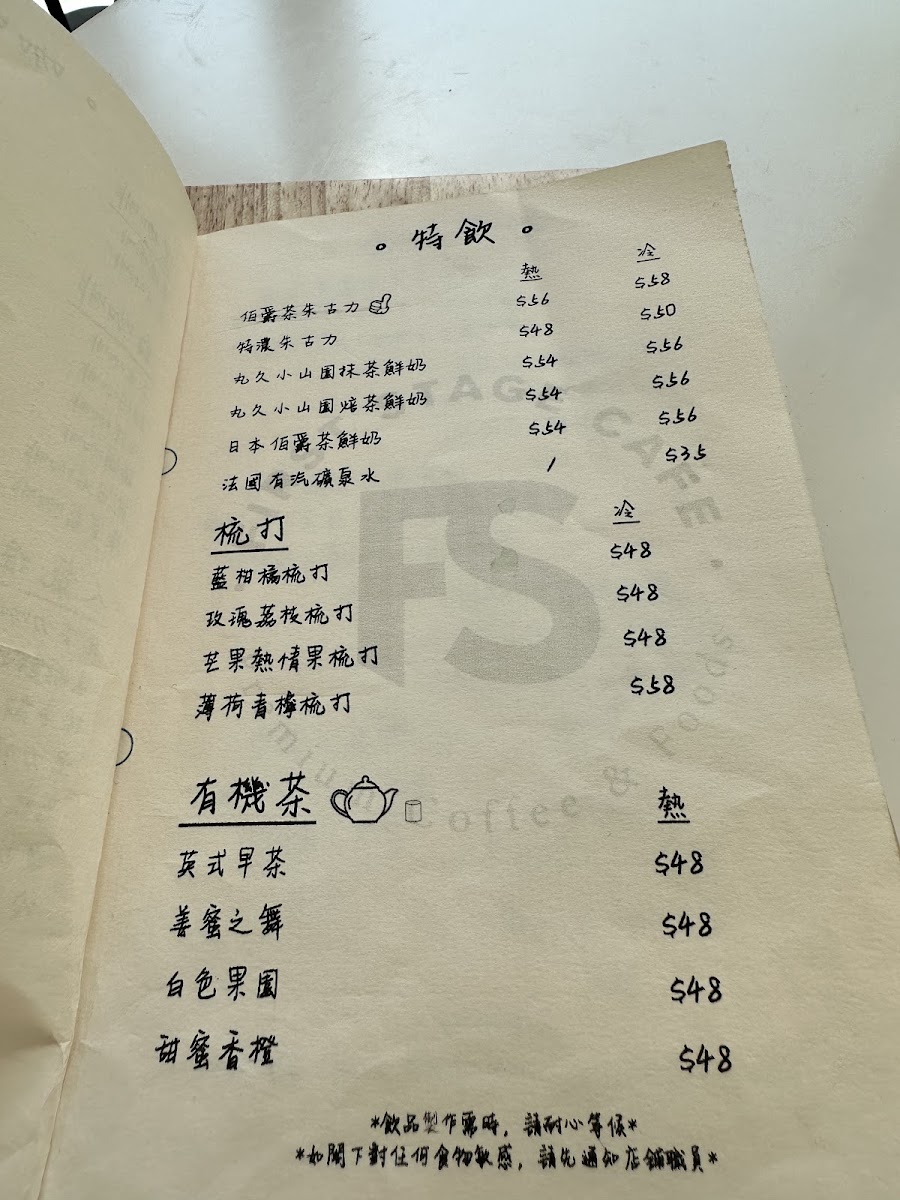 。特飲。
熱 冷
伯爵茶朱古力 $56 $58
特濃朱古力 $48 $50
丸久小山園抹茶鮮奶 $54 $56
丸久小山園焙茶鮮奶 $54 $56
日本伯爵茶鮮奶 $54 $56
法國有汽礦泉水 / $35
梳打 冷
藍柑橘梳打 $48
玫瑰荔枝梳打 $48
芒果熱情果梳打 $48
薄荷青檸梳打 $58
有機茶 熱
英式早茶 $48
姜蜜之舞 $48
白色果園 $48
甜蜜香橙 $48
*飲品製作需時，請耐心等候*
*如閣下對任何食物敏感，請先通知店鋪職員*
STAGE CAFE
FS
Premium Coffee & Foods